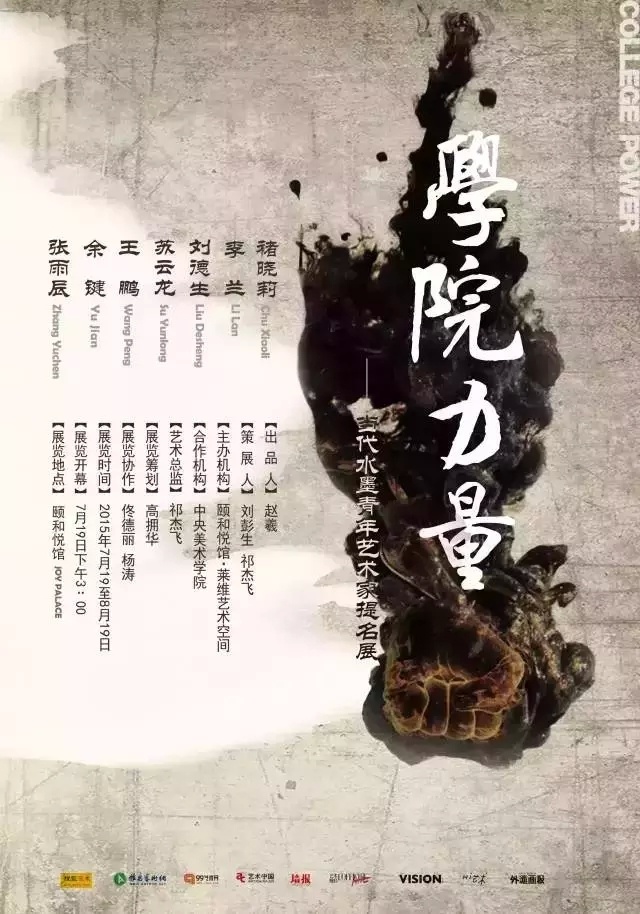 COLLEGE POWER
學院力量
——当代水墨青年艺术家提名展
褚晓莉 Chu Xiaoli
李兰 Li Lan
刘德生 Liu Desheng
苏云龙 Su Yunlong
王鹏 Wang Peng
余键 Yu Jian
张雨辰 Zhang Yuchen
【出品人】赵羲
【策展人】刘彭生 祁杰飞
【主办机构】颐和悦馆·莱维艺术空间
【合作机构】中央美术学院
【艺术总监】祁杰飞
【展览筹划】高拥华
【展览协作】佟德丽 杨涛
【展览时间】2015年7月19至8月19日
【展览开幕】7月19日下午3:00
【展览地点】颐和悦馆 JOY PALACE
雅昌艺术网
99艺术网
艺术中国
墙报
VISION
Hi艺术
外滩画报